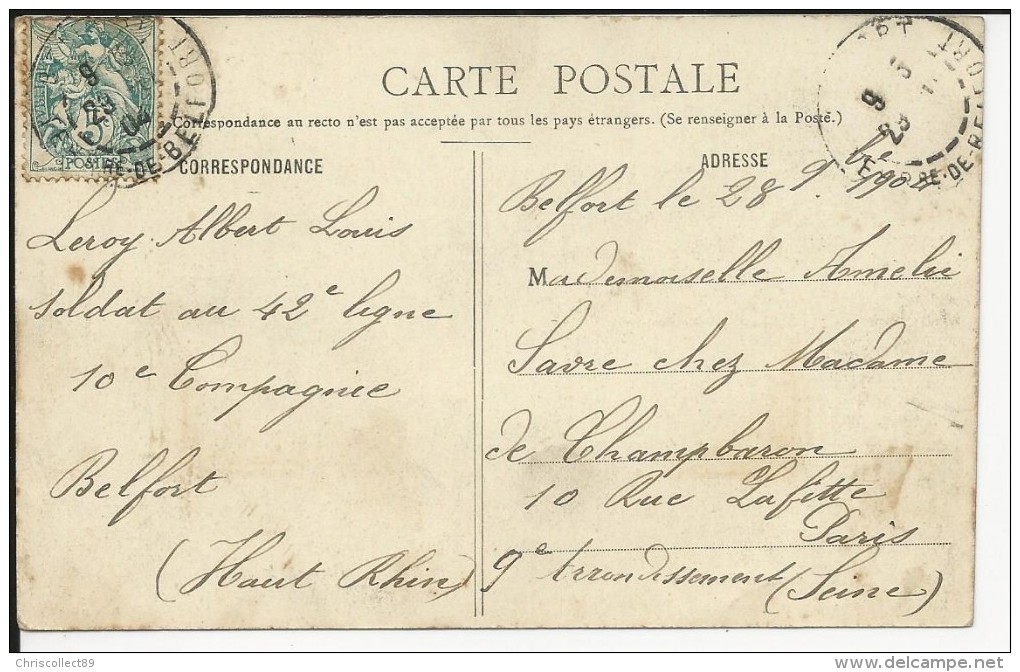 CARTE POSTALE
Correspondance au recto n'est pas acceptée par tous les pays étrangers. (Se renseigner à la Poste.)
CORRESPONDANCE
Leroy Albert Louis
soldat au 42e ligne
10e Compagnie
Belfort
(Haut Rhin)
ADRESSE
Belfort le 28 9bre 1904
Mademoiselle Amelie
Savre chez Madame
de Champbaron
10 Rue Lafitte
Paris
9e Arrondissement (Seine)
POSTES
RE-DE-BELFORT
8
23
04
RE-DE-BELFORT
8
23
Chriscollect89
www.delcampe.net